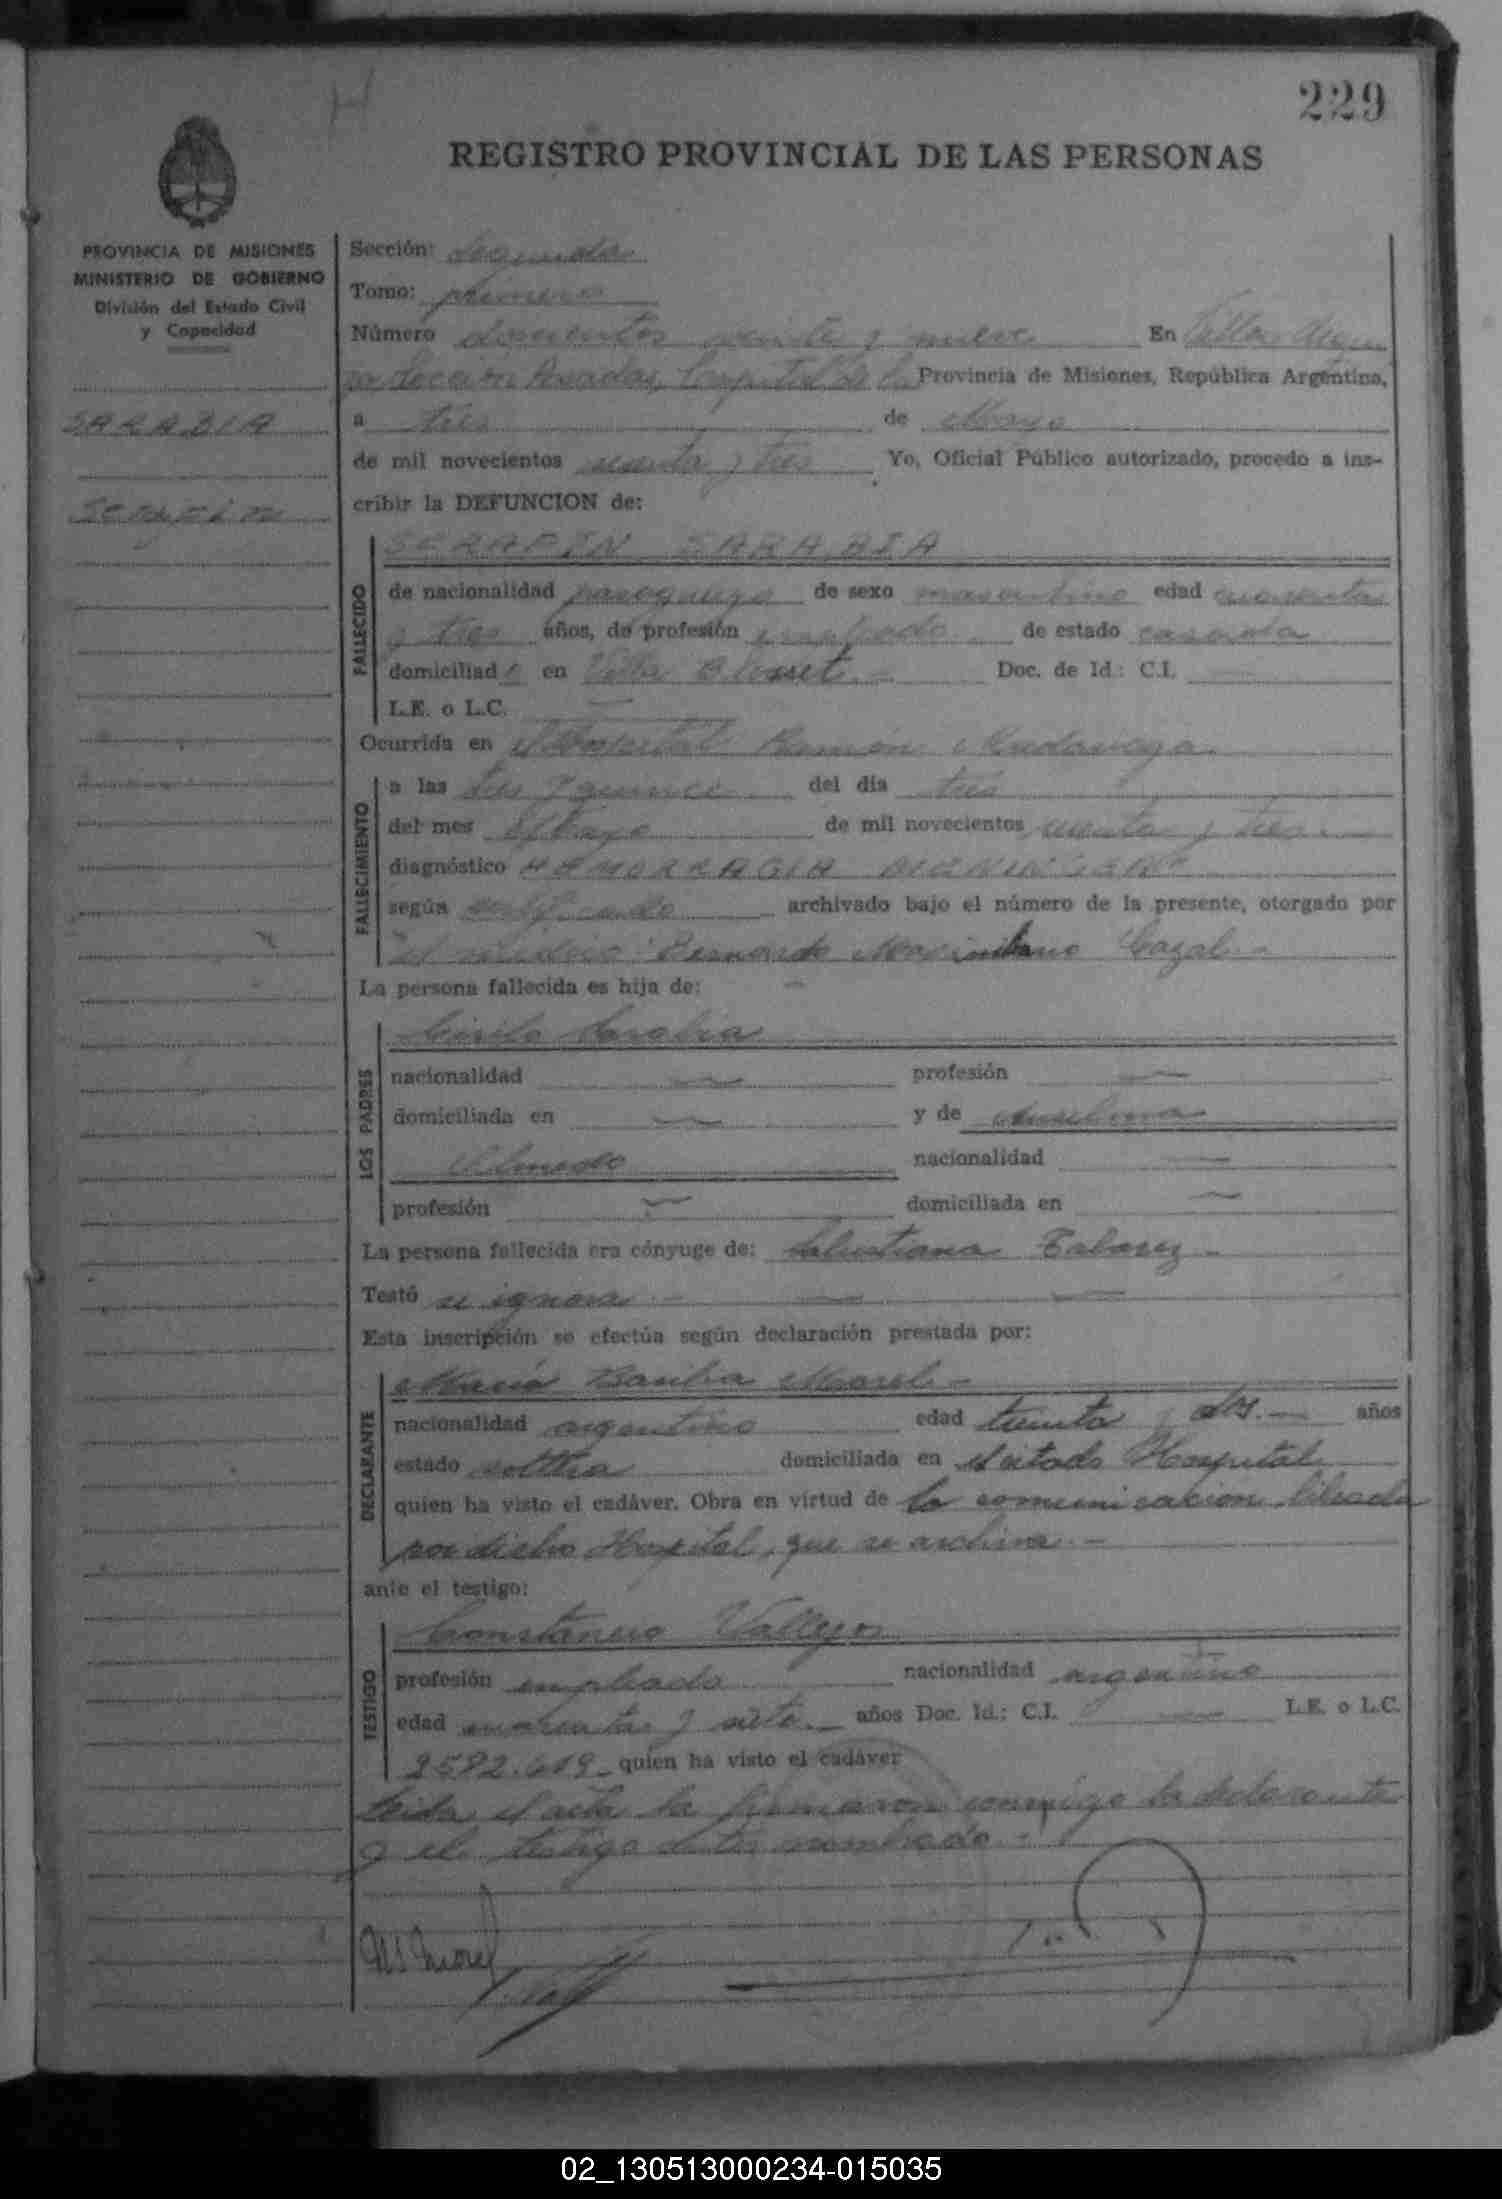 229
REGISTRO PROVINCIAL DE LAS PERSONAS
PROVINCIA DE MISIONES
MINISTERIO DE GOBIERNO
División del Estado Civil
y Capacidad
SARABIA
Serafin
Sección: Segunda
Tomo: primero
Número doscientos veinte y nueve En Villa
Posadas, Capital de la Provincia de Misiones, República Argentina,
a tres de Mayo
de mil novecientos sesenta y tres Yo, Oficial Público autorizado, procedo a ins-
cribir la DEFUNCION de:
FALLECIDO
SERAFIN SARABIA
de nacionalidad paraguayo de sexo masculino edad cuarenta
y tres años, de profesión empleado de estado casado
domiciliado en Villa Blosset.- Doc. de Id.: C.I. —
L.E. o L.C. —
Ocurrida en el Hospital Ramón Madariaga.
FALLECIMIENTO
a las tres y quince del día tres
del mes de Mayo de mil novecientos sesenta y tres.-
diagnóstico HEMORRAGIA MENINGEA
según certificado archivado bajo el número de la presente, otorgado por
el médico Bernardo Maximiliano Cazal.-
La persona fallecida es hija de: -
LOS PADRES
Cirilo Sarabia
nacionalidad — profesión —
domiciliada en — y de Anselma
Olmedo nacionalidad —
profesión — domiciliada en —
La persona fallecida era cónyuge de: Salustiana Tabarez.-
Testó se ignora.- — —
Esta inscripción se efectúa según declaración prestada por:
DECLARANTE
María Morel.-
nacionalidad argentina edad treinta y dos.- años
estado soltera domiciliada en el citado Hospital
quien ha visto el cadáver. Obra en virtud de la comunicacion librada
por dicho Hospital, que se archiva.-
ante el testigo:
TESTIGO
Constancio Vallejos
profesión empleado nacionalidad argentino
edad cuarenta y siete.- años Doc. Id.: C.I. — L.E. o L.C.
quien ha visto el cadáver
Leida el acta la firmaron conmigo la declarante
y el testigo antes nombrado.-
Morel
02_130513000234-015035